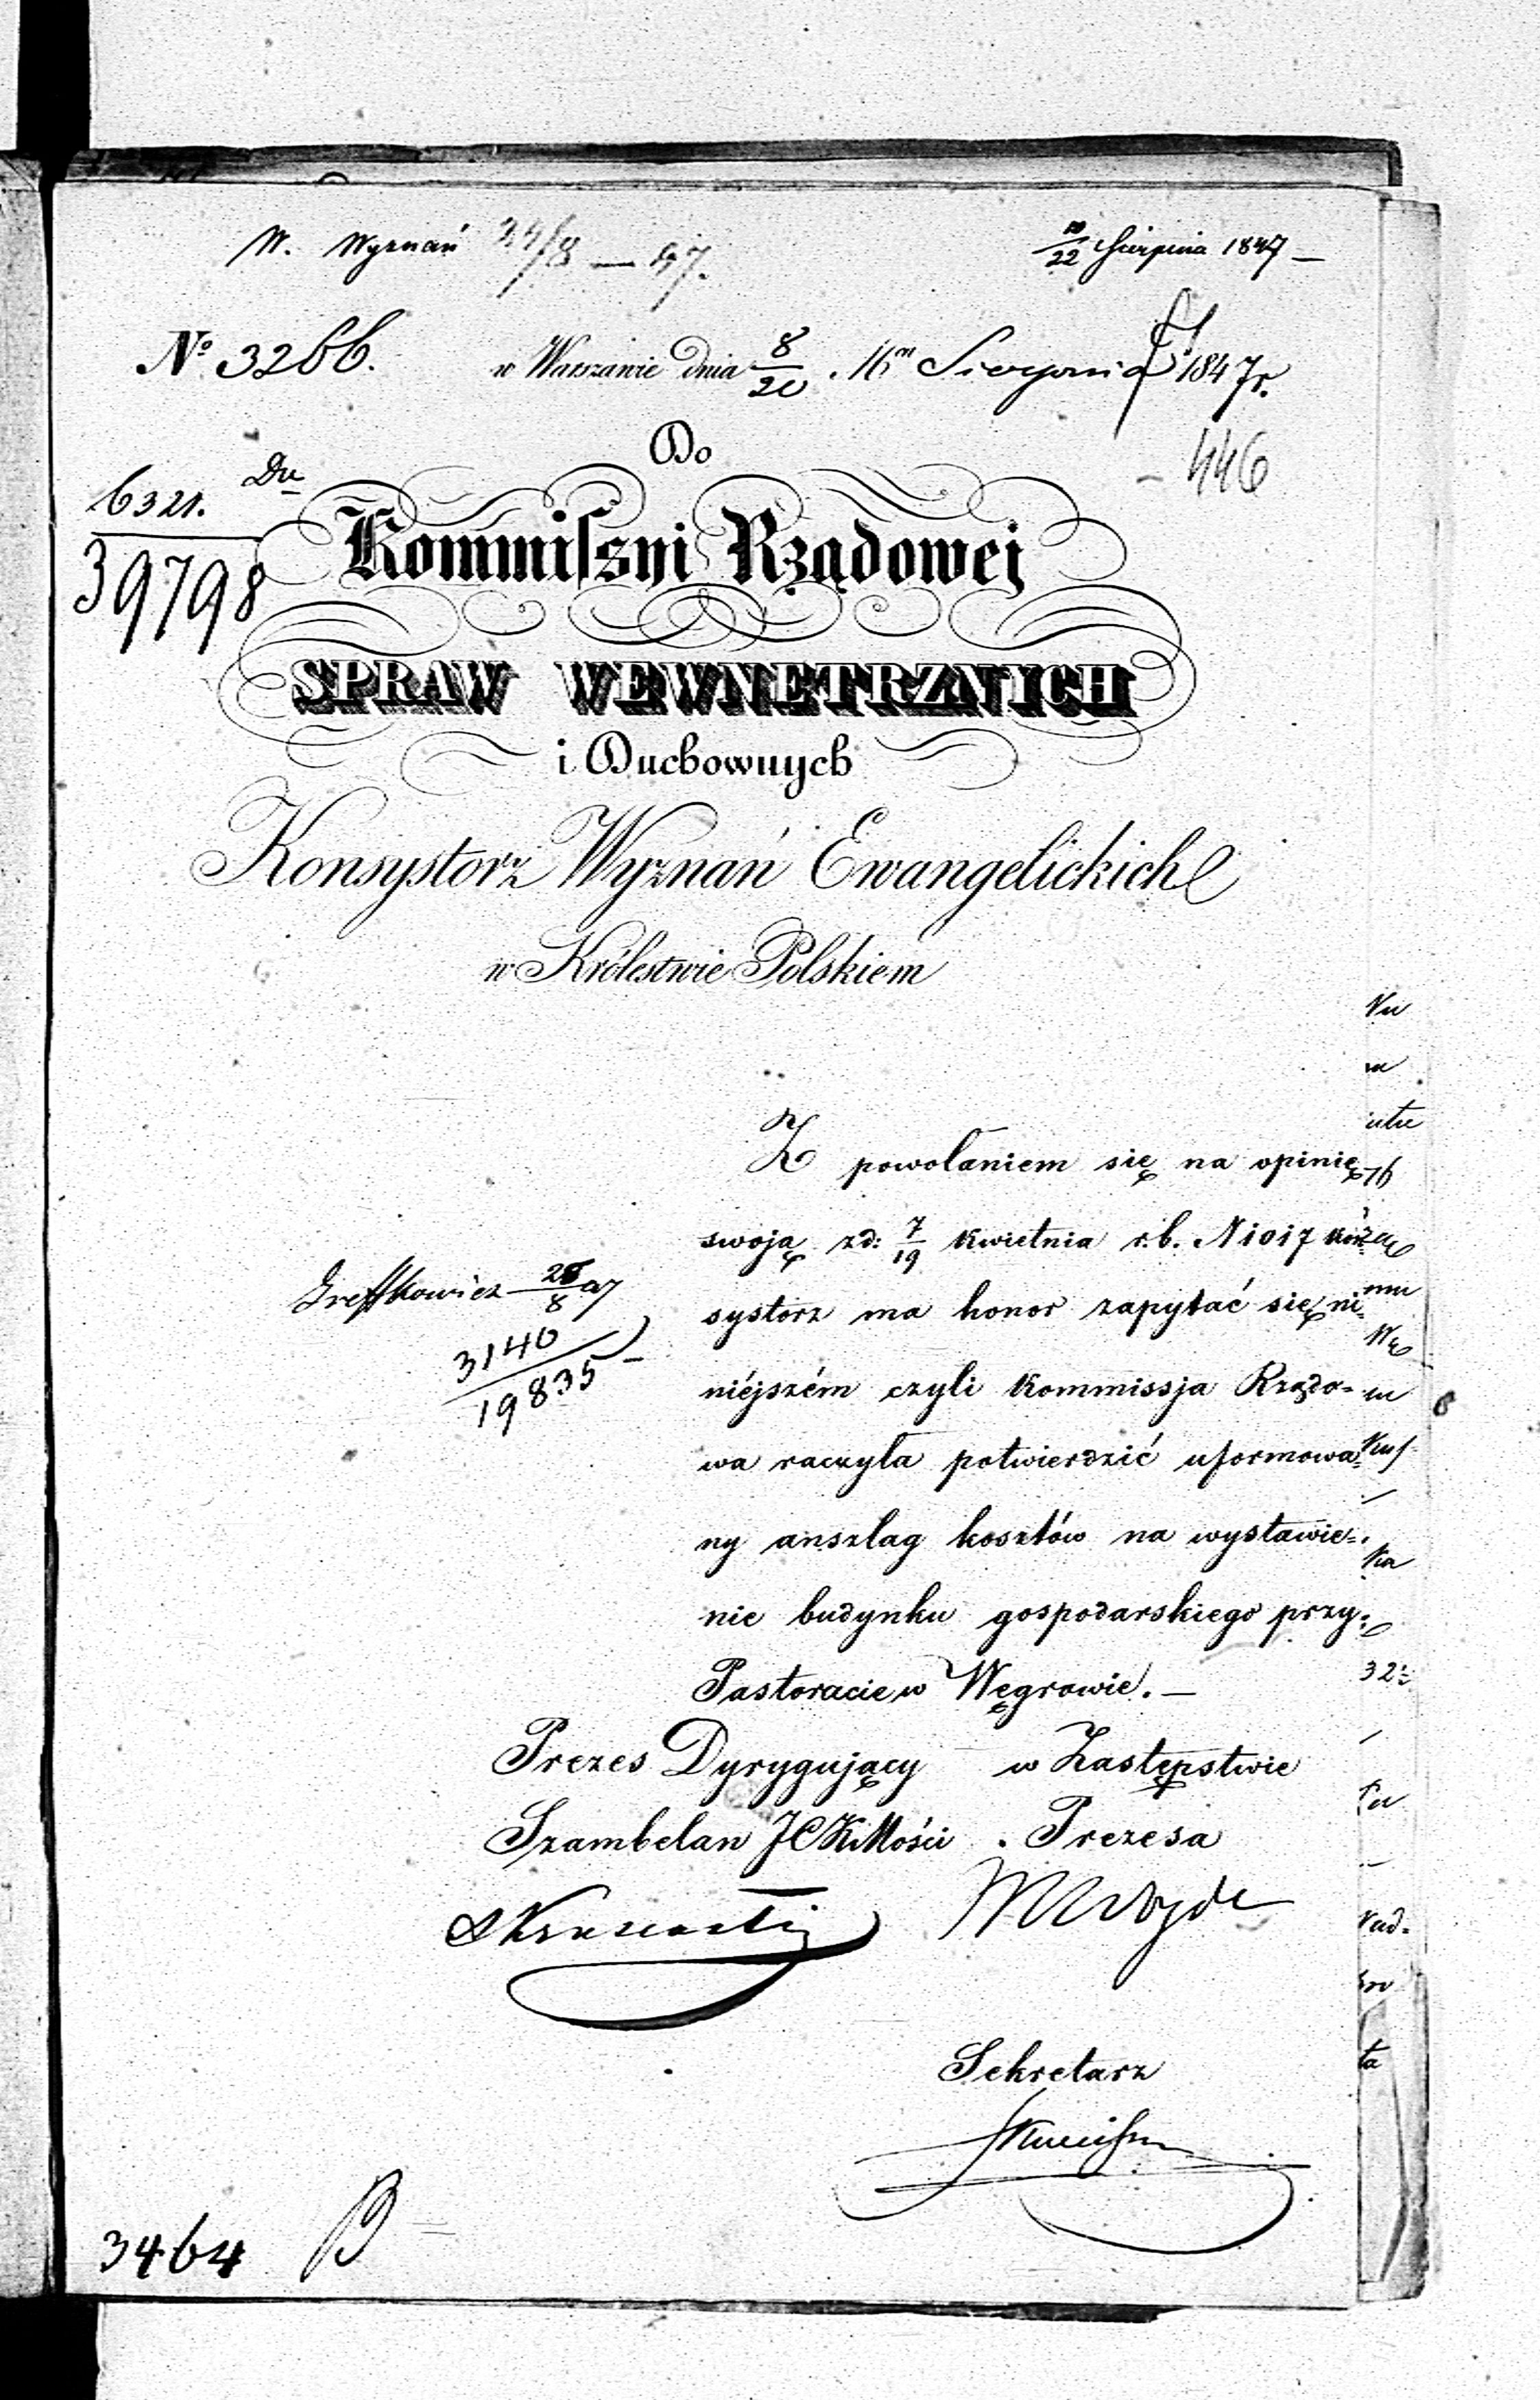 W. Wyznań 24/8 — 47.
10/22 Sierpnia 1847 —
No 3266. w Warszawie dnia 8/20 Mca Sierpnia 1847 r.
446
Do
6321.
39798
Kommissyi Rządowej
SPRAW WEWNETRZNYCH
i Duchownych
Konsystorz Wyznań Ewangelickich
w Królestwie Polskiem
Z powołaniem się na opinię
swoją zd: 7/19 Kwietnia r.b. N 1017 Kon=
systorz ma honor zapytać się ni=
niéjszém czyli Kommissja Rządo=
wa raczyła potwierdzić uformowa=
ny anszlag kosztów na wystawie=
nie budynku gospodarskiego przy
Pastoracie w Węgrowie. —
3140
19835
Prezes Dyrygujący w Zastępstwie
Szambelan JCKMości Prezesa
Sekretarz
3464 B